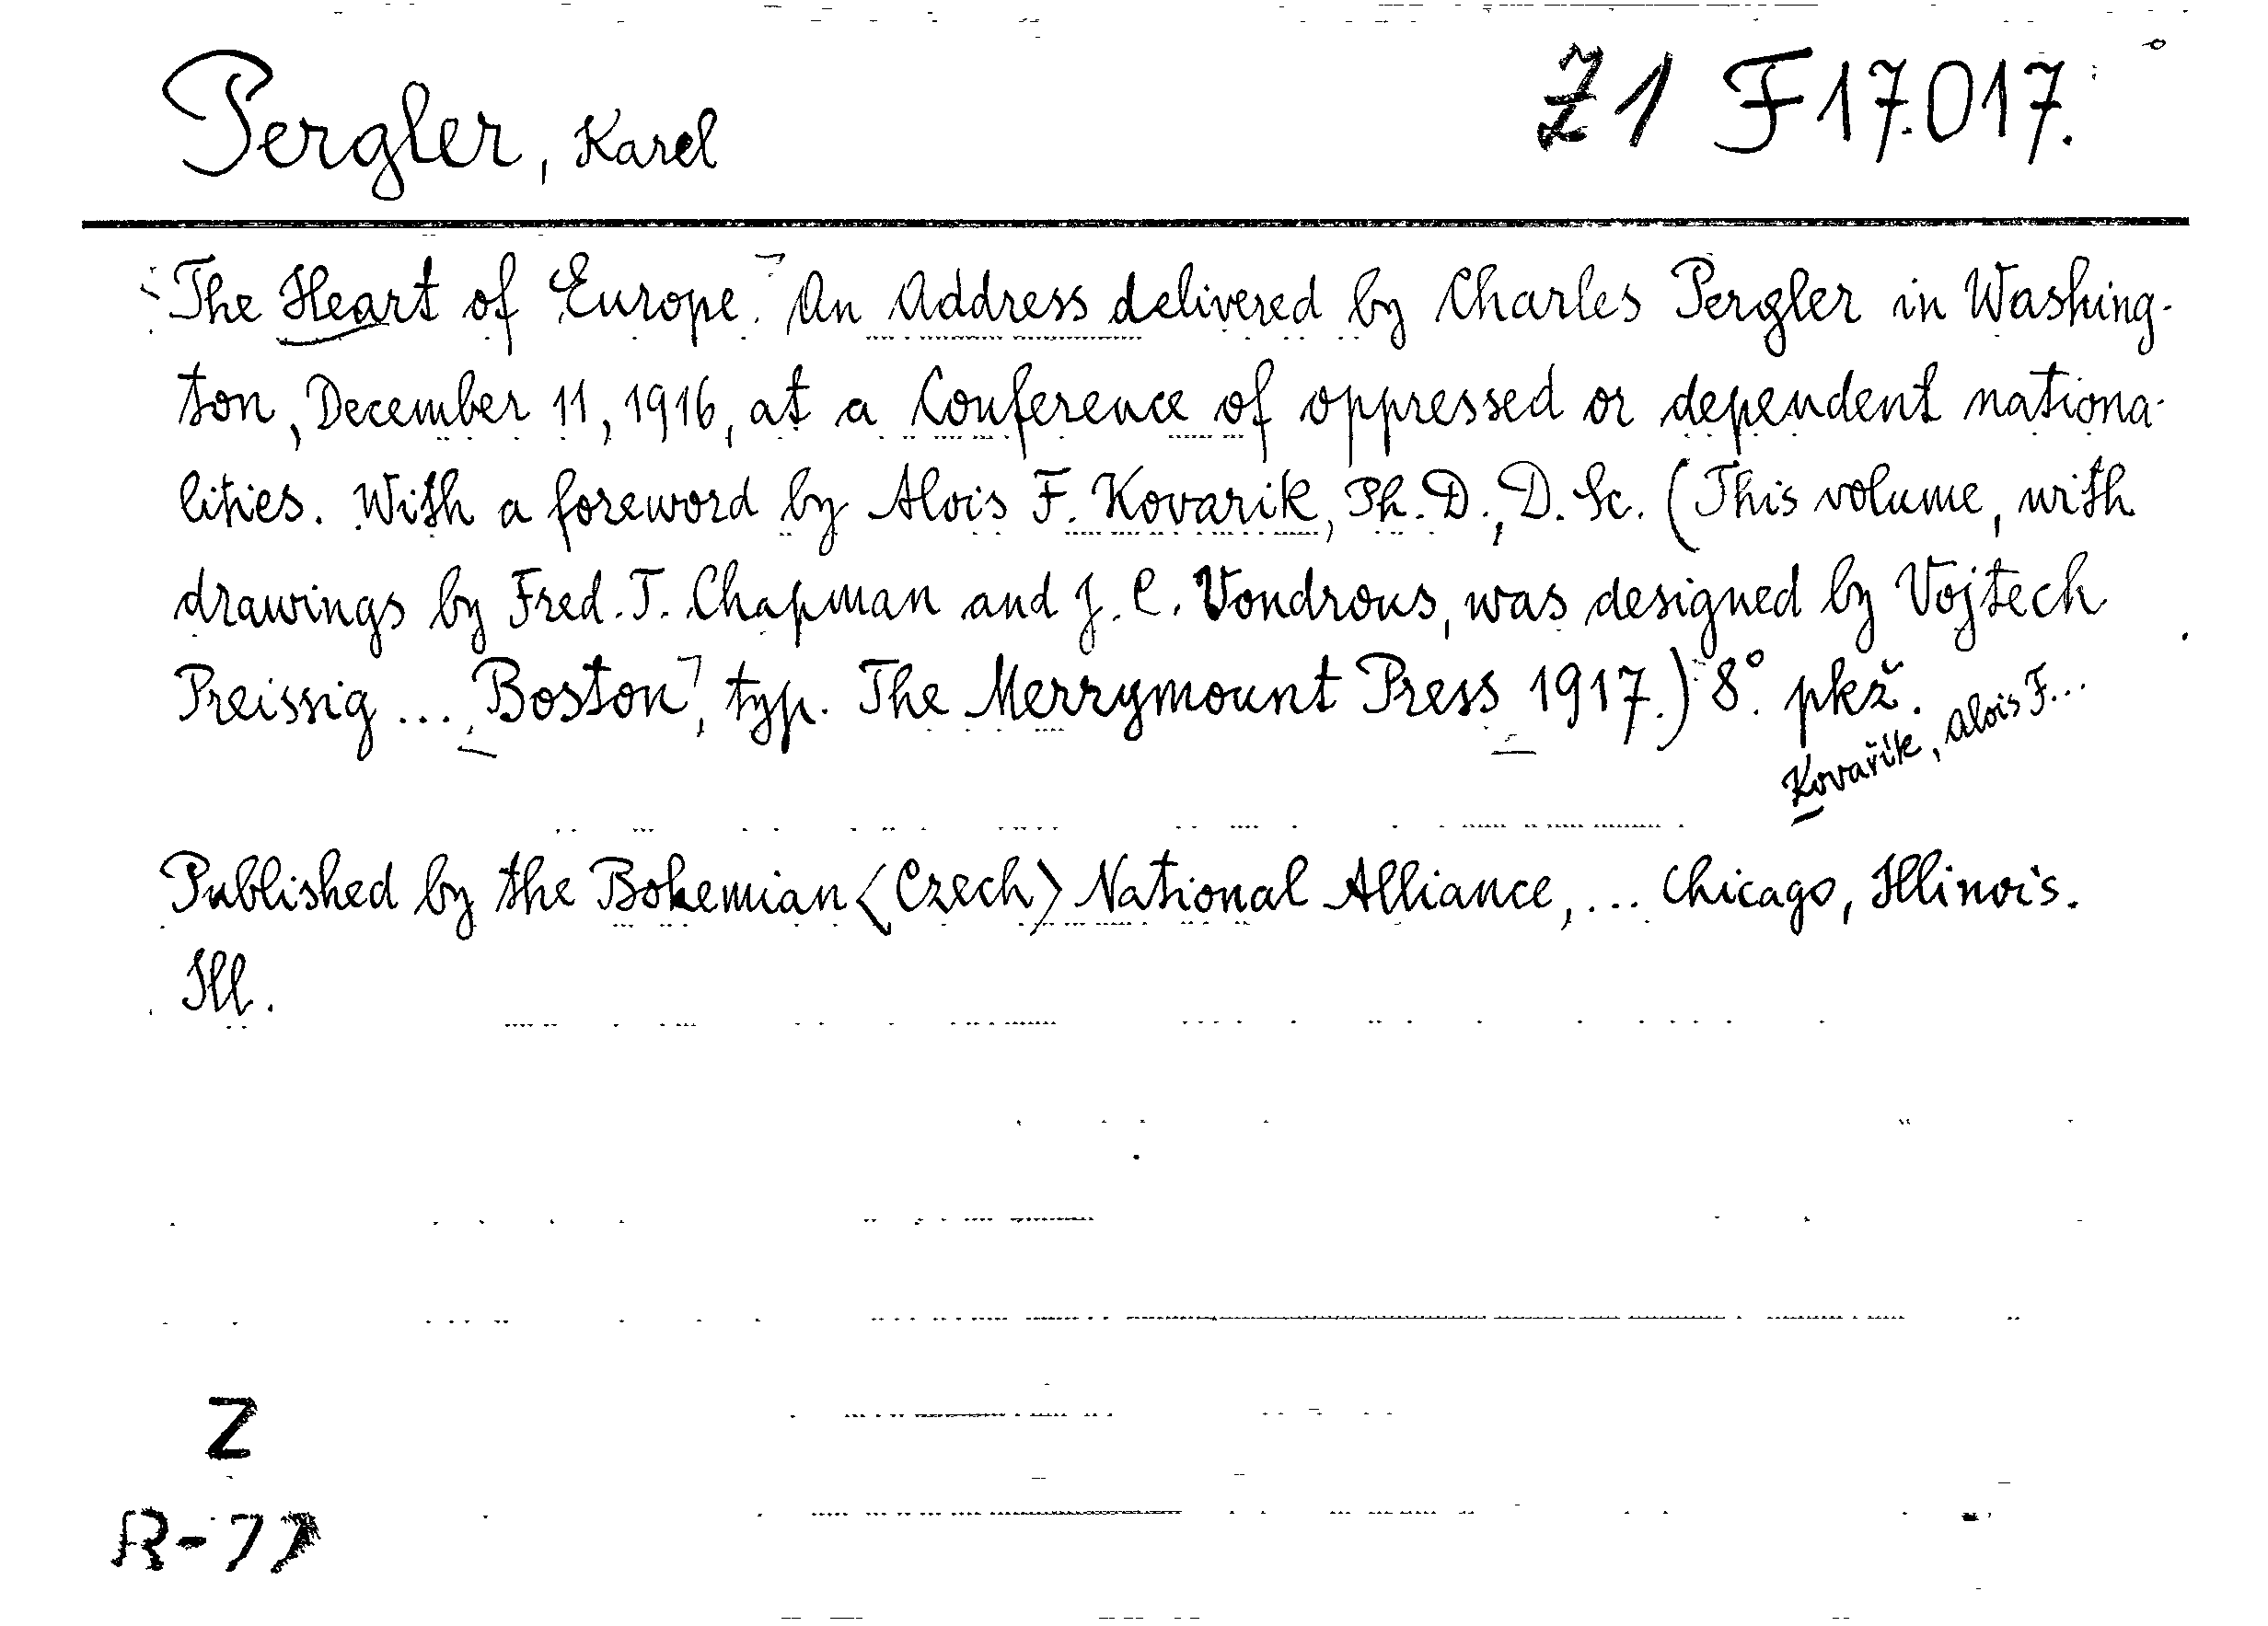 Pergler, Karel
Z1 F 17.017.
The Heart of Europe. An Address delivered by Charles Pergler in Washing-
ton, December 11, 1916, at a Conference of oppressed or dependent nationa-
lities. With a foreword by Alois F. Kovarik, Ph. D., D. Sc. (This volume, with
drawings by Fred. T. Chapman and J. C. Vondrous, was designed by Vojtech
Preissig ... Boston, typ. The Merrymount Press 1917.) 8°. pkž.
Kovařík, Alois F...
Published by the Bohemian <Czech> National Alliance, ... Chicago, Illinois.
Ill.
Z
R-77